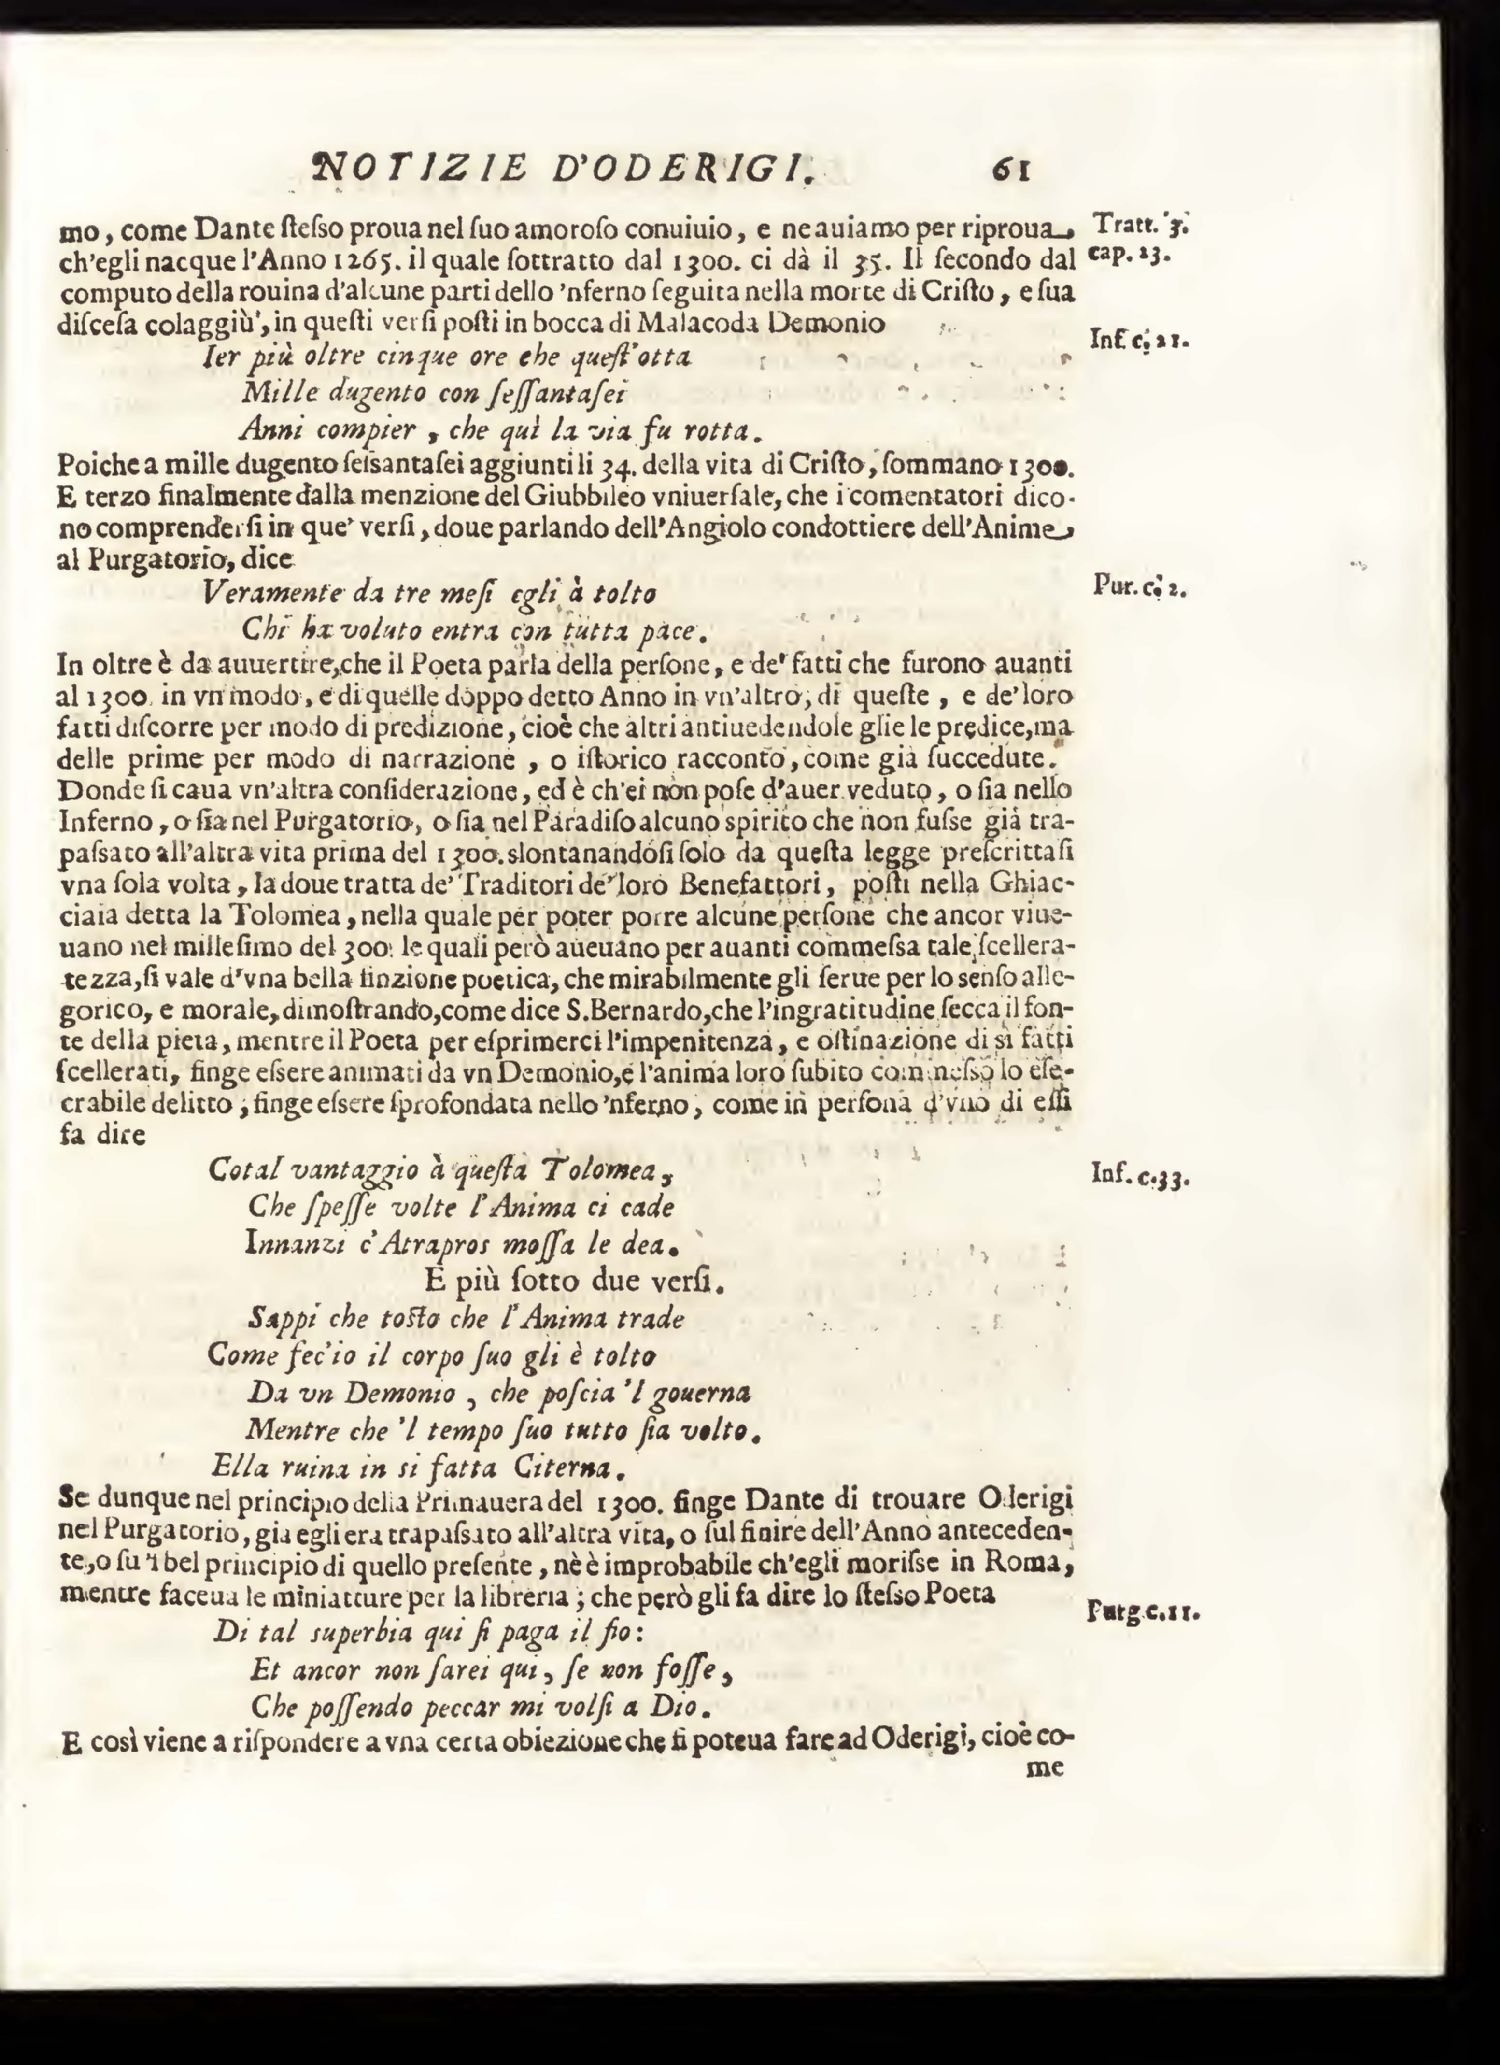 NOTIZIE D'ODERIGI. 61
mo, come Dante ſteſso proua nel ſuo amoroſo conuiuio, e ne auiamo per riproua, Tratt. 3.
ch'egli nacque l'Anno 1265. il quale ſottratto dal 1300. ci dà il 35. Il ſecondo dal cap. 23.
computo della rouina d'alcune parti dello 'nferno ſeguita nella morte di Criſto, e ſua
diſceſa colaggiù, in queſti verſi poſti in bocca di Malacoda Demonio
Ier più oltre cinque ore che queſt'otta Inf. c. 21.
Mille dugento con ſeſſantaſei
Anni compier, che quì la via fu rotta.
Poiche a mille dugento ſeſsantaſei aggiunti li 34. della vita di Criſto, ſommano 1300.
E terzo finalmente dalla menzione del Giubbileo vniuerſale, che i comentatori dico-
no comprenderſi in que' verſi, doue parlando dell'Angiolo condottiere dell'Anime,
al Purgatorio, dice
Veramente da tre meſi egli à tolto Pur. c. 2.
Chi ha voluto entra con tutta pace.
In oltre è da auuertire, che il Poeta parla della perſone, e de' fatti che furono auanti
al 1300. in vn modo, e di quelle doppo detto Anno in vn'altro, di queſte, e de' loro
fatti diſcorre per modo di predizione, cioè che altri antiuedendole glie le predice, ma
delle prime per modo di narrazione, o iſtorico racconto, come già ſuccedute.
Donde ſi caua vn'altra conſiderazione, ed è ch'ei non poſe d'auer veduto, o ſia nello
Inferno, o ſia nel Purgatorio, o ſia nel Paradiſo alcuno ſpirito che non fuſse già tra-
paſsato all'altra vita prima del 1300. slontanandoſi ſolo da queſta legge preſcrittaſi
vna ſola volta, la doue tratta de' Traditori de' loro Benefattori, poſti nella Ghiac-
ciaia detta la Tolomea, nella quale per poter porre alcune perſone che ancor viue-
uano nel milleſimo del 300. le quali però aueuano per auanti commeſsa tale ſcellera-
tezza, ſi vale d'vna bella finzione poetica, che mirabilmente gli ſerue per lo senſo alle-
gorico, e morale, dimoſtrando, come dice S. Bernardo, che l'ingratitudine ſecca il fon-
te della pieta, mentre il Poeta per eſprimerci l'impenitenza, e oſtinazione di sì fatti
ſcellerati, finge eſsere animati da vn Demonio, e l'anima loro ſubito commeſso lo eſe-
crabile delitto, finge eſsere ſprofondata nello 'nferno, come in perſona d'vno di eſſi
fa dire
Cotal vantaggio à queſta Tolomea, Inf. c. 33.
Che ſpeſſe volte l'Anima ci cade
Innanzi c'Atrapros moſſa le dea.
E più ſotto due verſi.
Sappi che toſto che l'Anima trade
Come fec'io il corpo ſuo gli è tolto
Da vn Demonio, che poſcia 'l gouerna
Mentre che 'l tempo ſuo tutto ſia volto.
Ella ruina in si fatta Citerna.
Se dunque nel principio della Primauera del 1300. finge Dante di trouare Oderigi
nel Purgatorio, gia egli era trapaſsato all'altra vita, o ſul finire dell'Anno anteceden-
te, o ſu 'l bel principio di quello preſente, nè è improbabile ch'egli moriſse in Roma,
mentre faceua le miniatture per la libreria; che però gli fa dire lo ſteſso Poeta
Di tal superbia qui ſi paga il fio: Purg. c. 11.
Et ancor non ſarei qui, ſe non foſſe,
Che poſſendo peccar mi volſi a Dio.
E così viene a riſpondere a vna certa obiezione che ſi poteua fare ad Oderigi, cioè co-
me